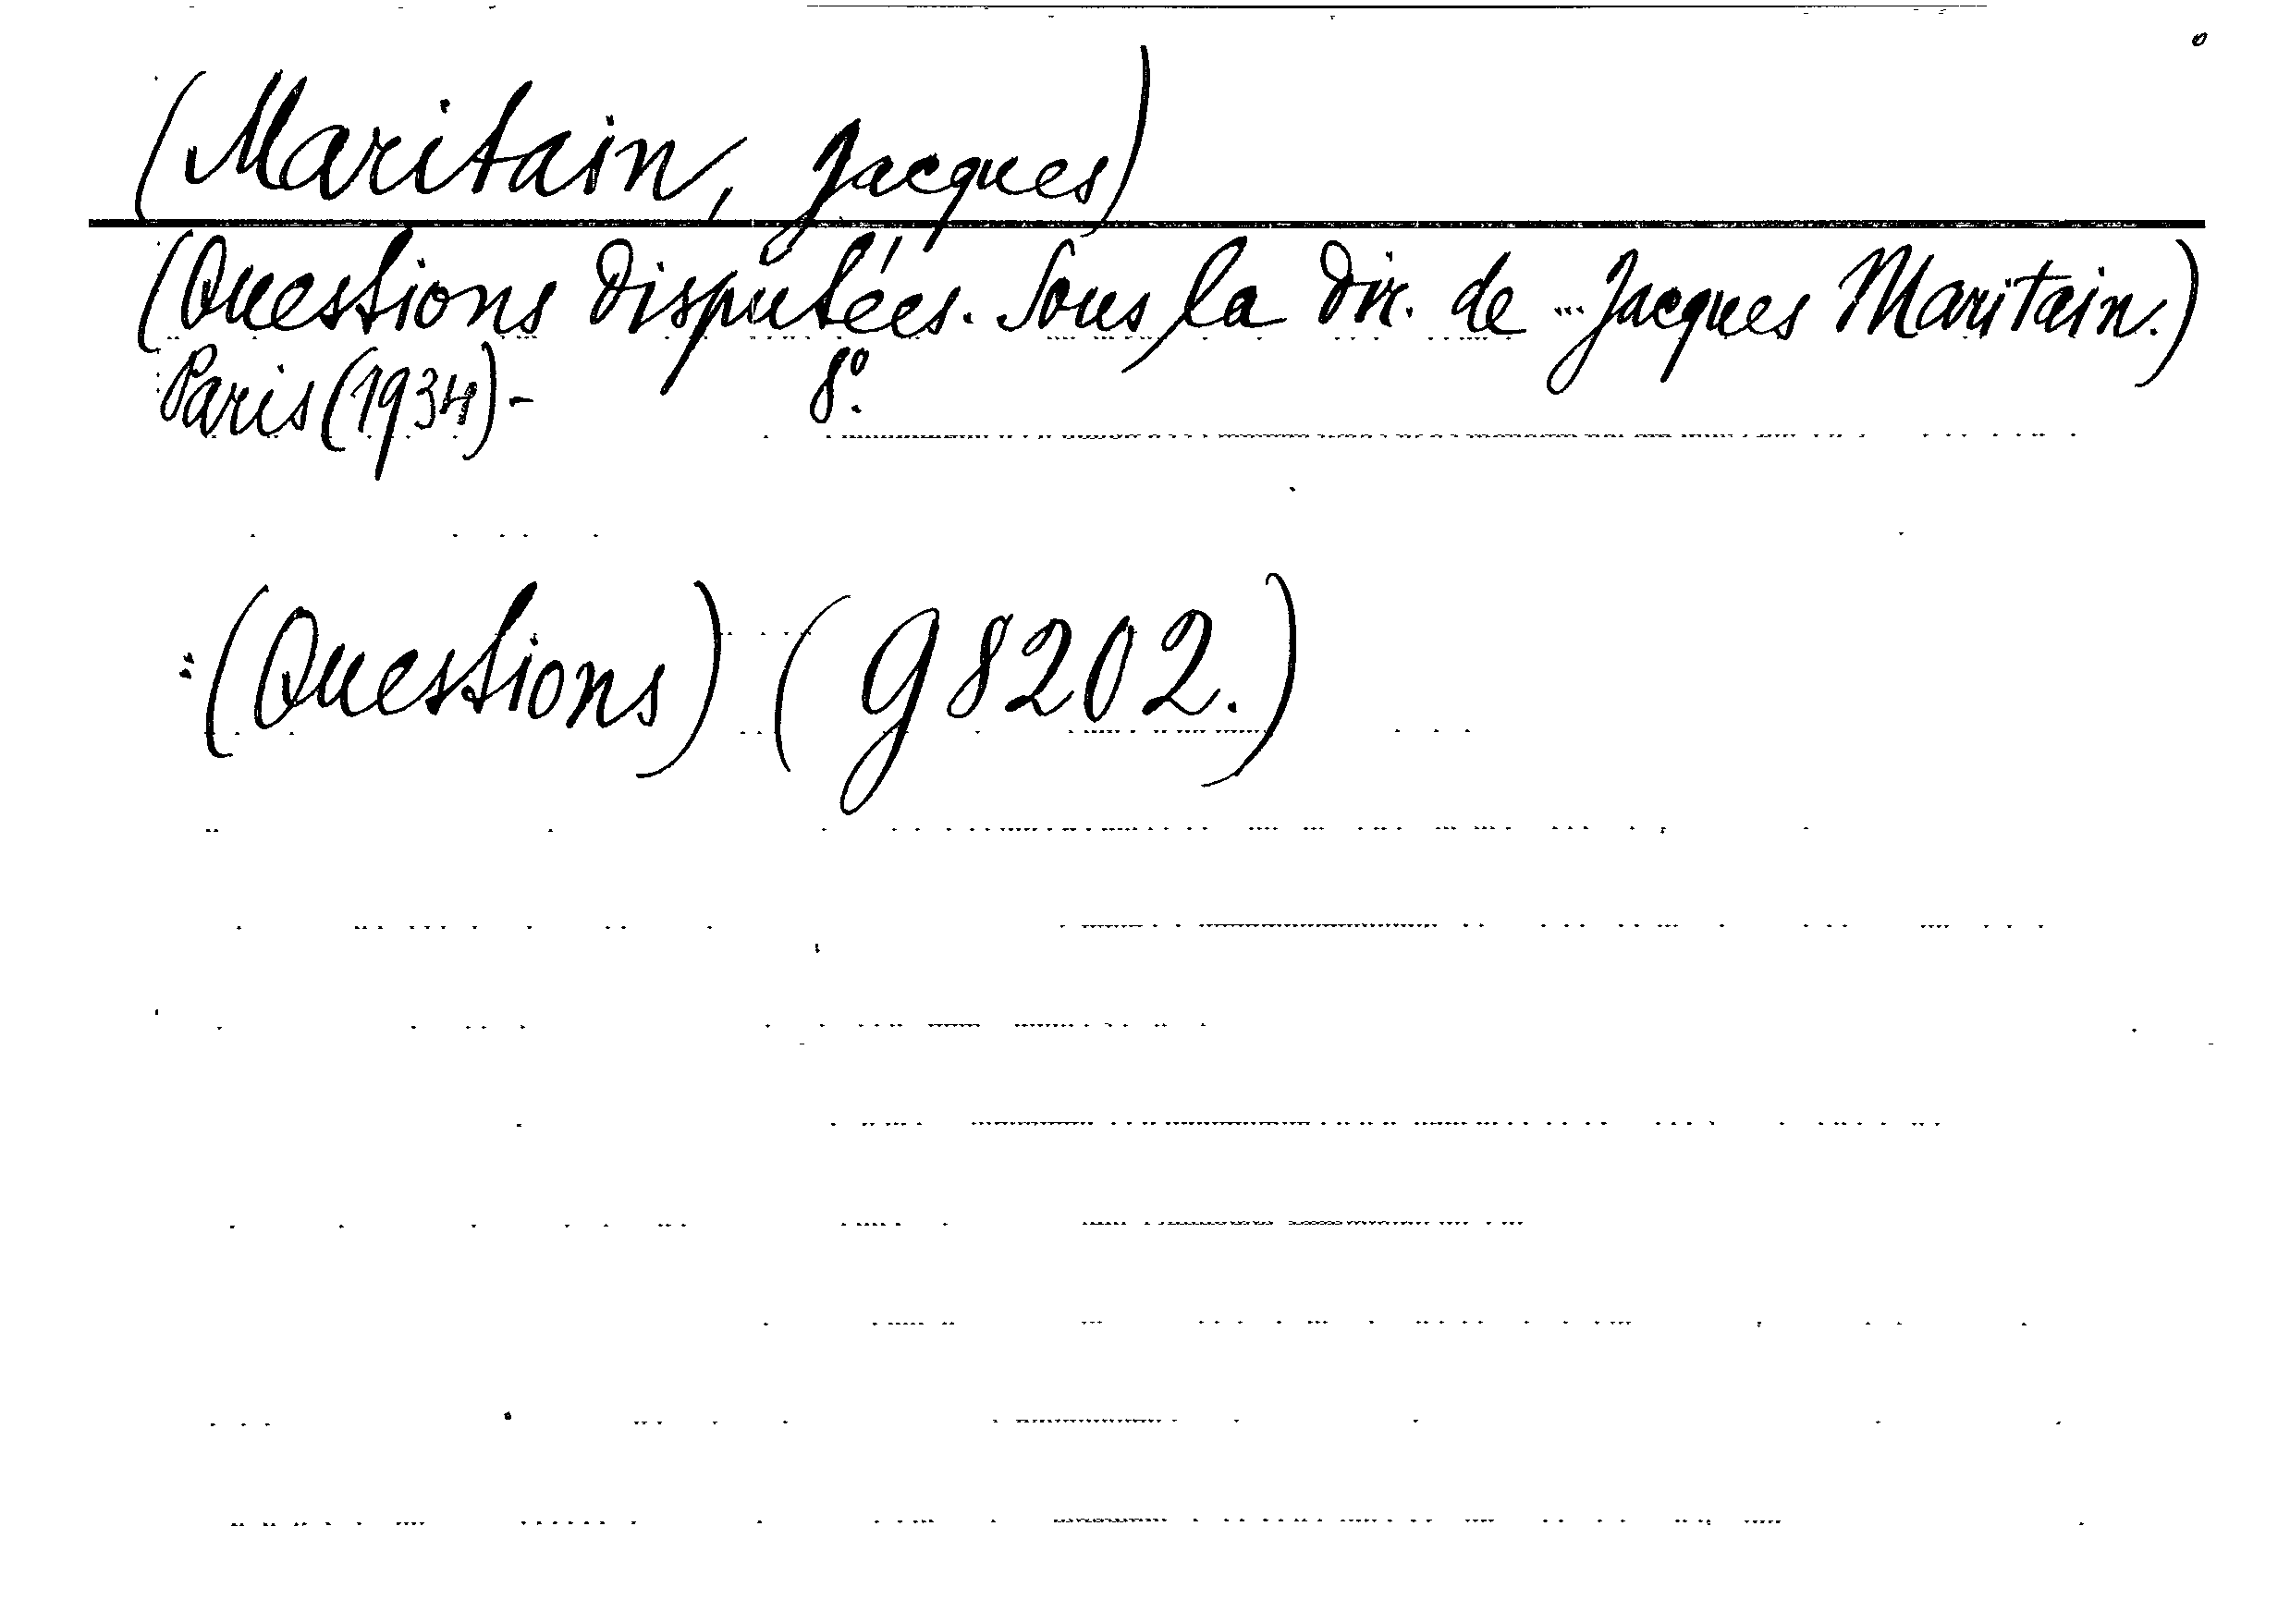 (Maritain, Jacques)
(Questions disputées. Sous la dir. de ... Jacques Maritain.)
Paris (1934)- 8º.
(Questions) (G 8202.)